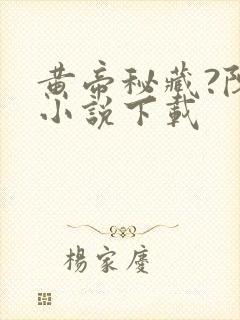 黄帝秘藏?
小說下載
楊家慶